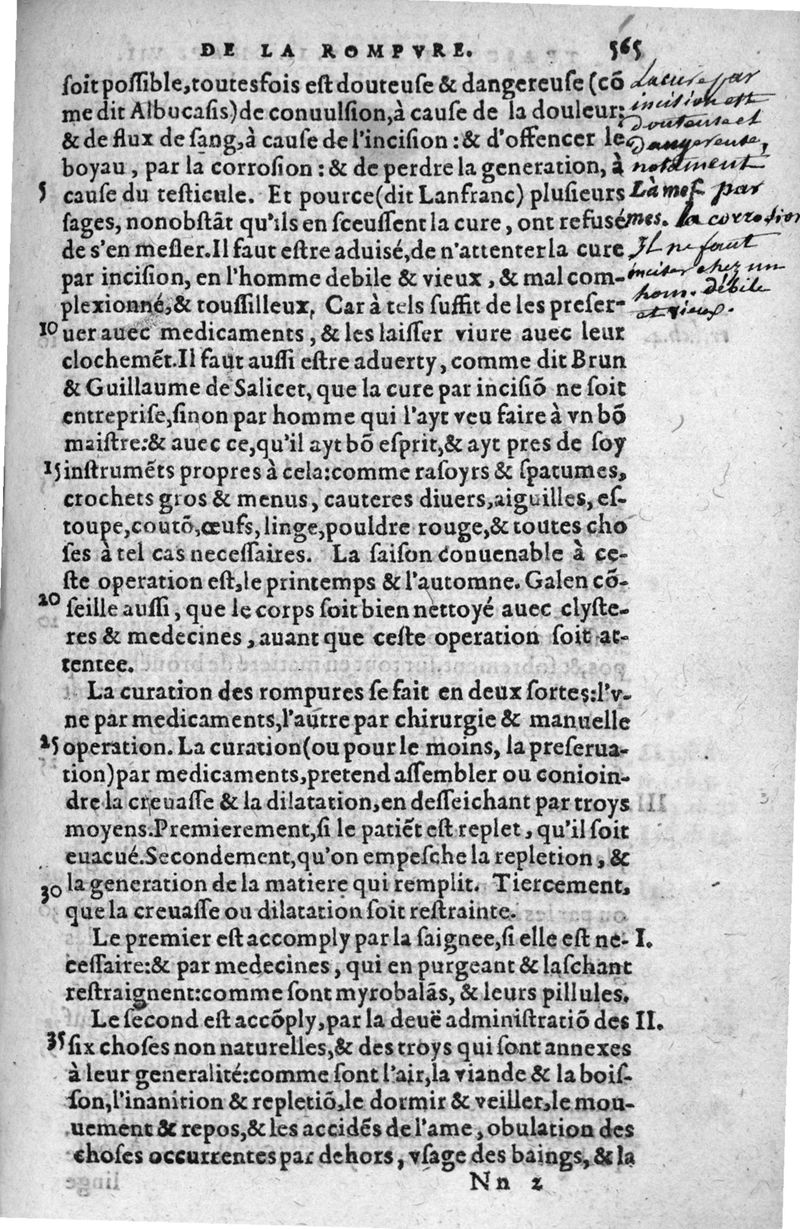 DE LA ROMPVRE. 565
soit possible, toutesfois est douteuse & dangereuse (cõ
me dit Albucasis) de conuulsion, à cause de la douleur:
& de flux de sang, à cause de l'incision: & d'offencer le
boyau, par la corrosion: & de perdre la generation, à
5 cause du testicule. Et pource (dit Lanfranc) plusieurs
sages, nonobstãt qu'ils en sceussent la cure, ont refusé
de s'en mesler. Il faut estre aduisé, de n'attenter la cure
par incision, en l'homme debile & vieux, & mal com-
plexionné, & toussilleux. Car à tels suffit de les preser-
10 uer auec medicaments, & les laisser viure auec leur
clochemẽt. Il faut aussi estre aduerty, comme dit Brun
& Guillaume de Salicet, que la cure par incisiõ ne soit
entreprise, sinon par homme qui l'ayt veu faire à vn bõ
maistre: & auec ce, qu'il ayt bõ esprit, & ayt pres de soy
15 instrumẽts propres à cela: comme rasoyrs & spatumes,
crochets gros & menus, cauteres diuers, aiguilles, es-
toupe, coutõ, œufs, linge, pouldre rouge, & toutes cho
ses à tel cas necessaires. La saison conuenable à ce-
ste operation est, le printemps & l'automne. Galen cõ-
20 seille aussi, que le corps soit bien nettoyé auec clyste-
res & medecines, auant que ceste operation soit at-
tentee.
La curation des rompures se fait en deux sortes: l'v-
ne par medicaments, l'autre par chirurgie & manuelle
25 operation. La curation (ou pour le moins, la preserua-
tion) par medicaments, pretend assembler ou conioin-
dre la creuasse & la dilatation, en desseichant par troys
moyens. Premierement, si le patiẽt est replet, qu'il soit
euacué. Secondement, qu'on empesche la repletion, &
30 la generation de la matiere qui remplit. Tiercement,
que la creuasse ou dilatation soit restrainte.
Le premier est accomply par la saignee, si elle est ne- I.
cessaire: & par medecines, qui en purgeant & laschant
restraignent: comme sont myrobalãs, & leurs pillules.
Le second est accõply, par la deuë administratiõ des II.
35 six choses non naturelles, & des troys qui sont annexes
à leur generalité: comme sont l'air, la viande & la bois-
son, l'inanition & repletiõ, le dormir & veiller, le mou-
uement & repos, & les accidẽs de l'ame, obulation des
choses occurrentes par dehors, vsage des baings, & la
Nn 2
La cure par
incision est
douteuse et
dangereuse,
notament
par
la corrosion
Il ne faut
inciser chez un
hom. débile
et vieux.